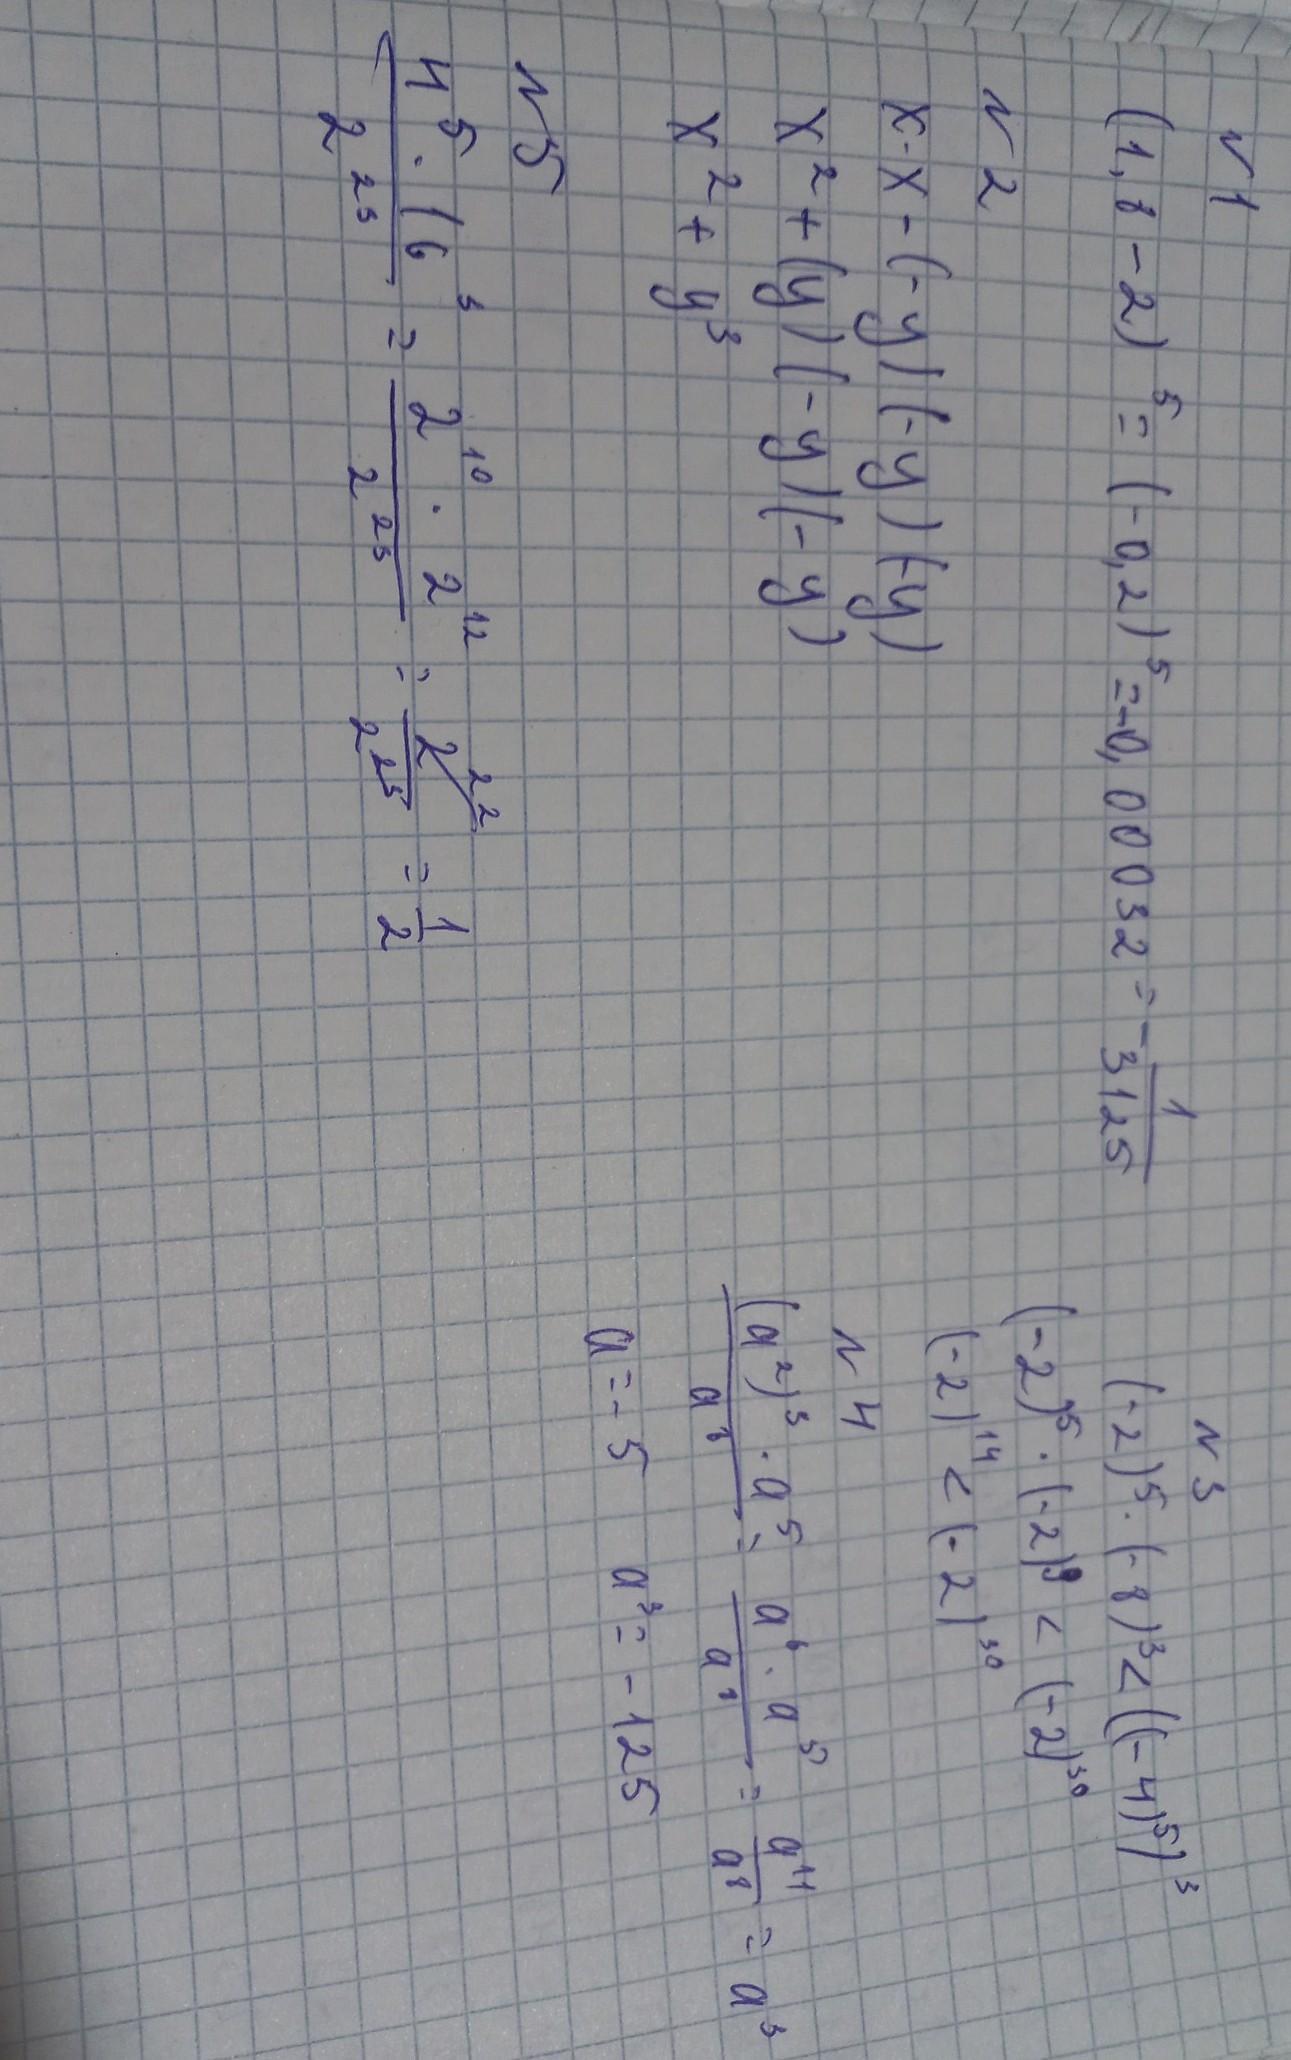 N1
(1,8-2)^5 = (-0,2)^5 = -0,00032 = -1/3125
N2
x·x-(-y)(-y)(-y)
x^2+(y)(-y)(-y)
x^2+y^3
N5
4^5·16^3/2^23 = 2^10·2^12/2^23 = 2^22/2^23 = 1/2
N3
(-2)^5·(-8)^3<((-4)^5)^3
(-2)^5·(-2)^9<(-2)^30
(-2)^14<(-2)^30
N4
(a^2)^3·a^5/a^8 = a^6·a^5/a^8 = a^11/a^8 = a^3
a=-5 a^3=-125